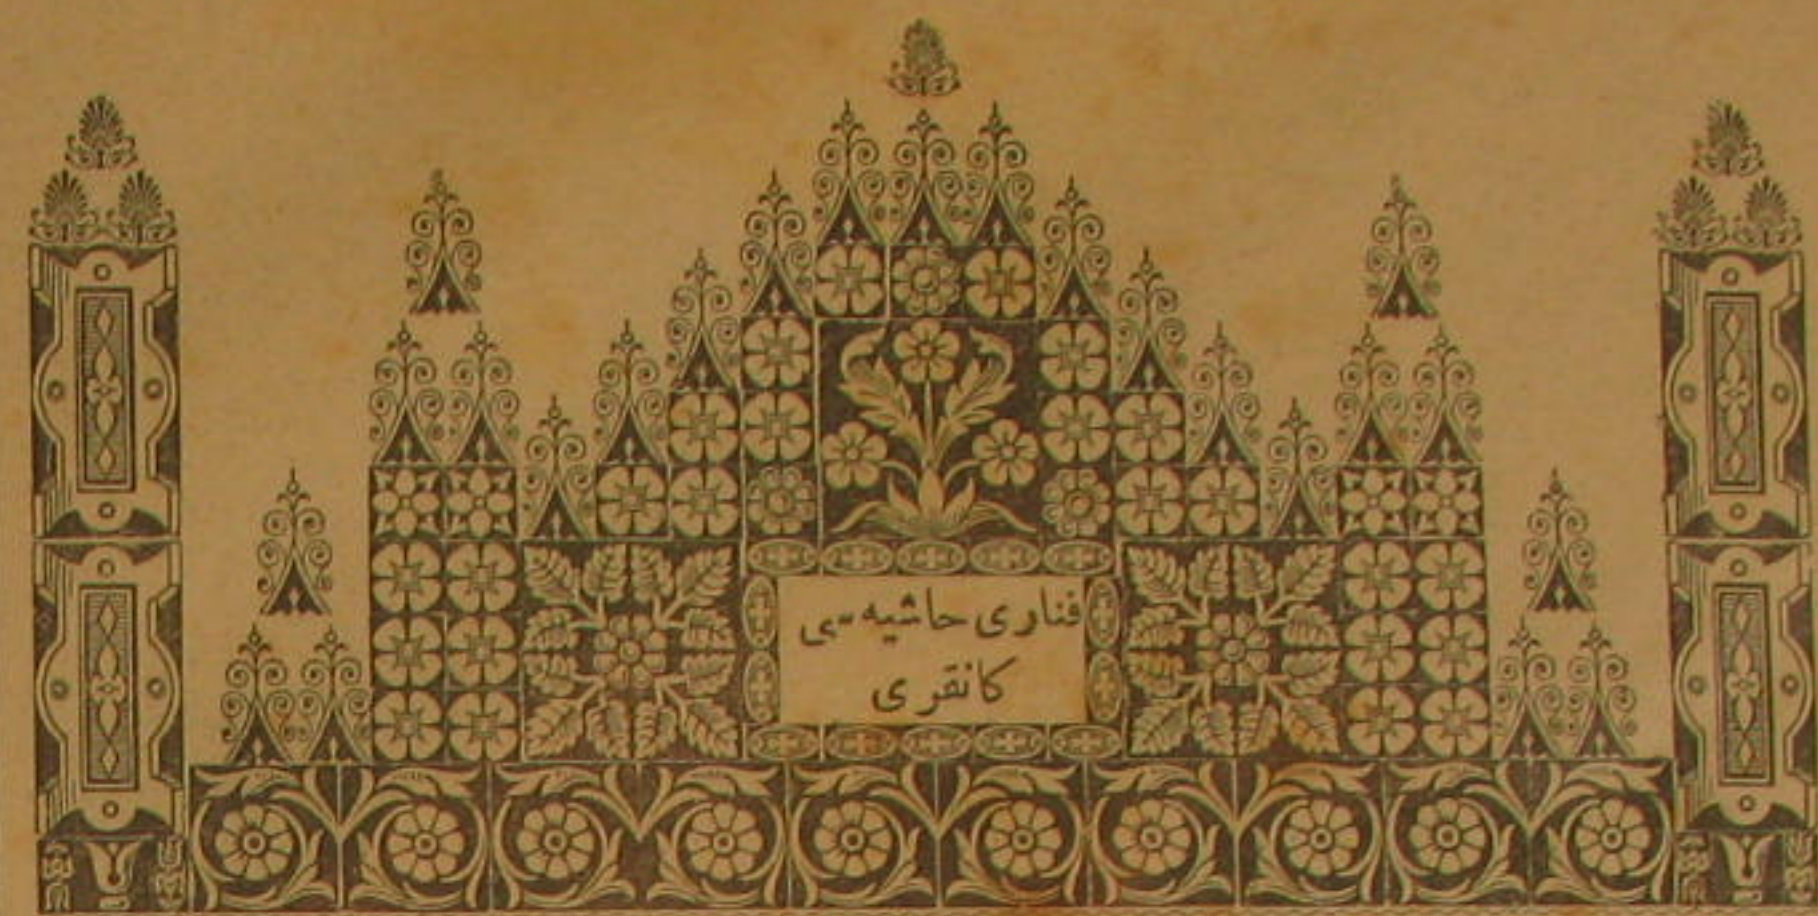 فناری حاشیه سی
كانقری